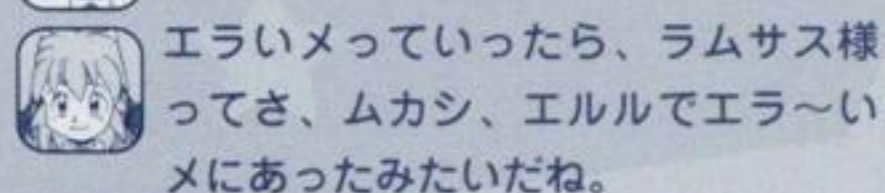 エラいメっていったら、ラムサス様
ってさ、ムカシ、エルルでエラ〜い
メにあったみたいだね。